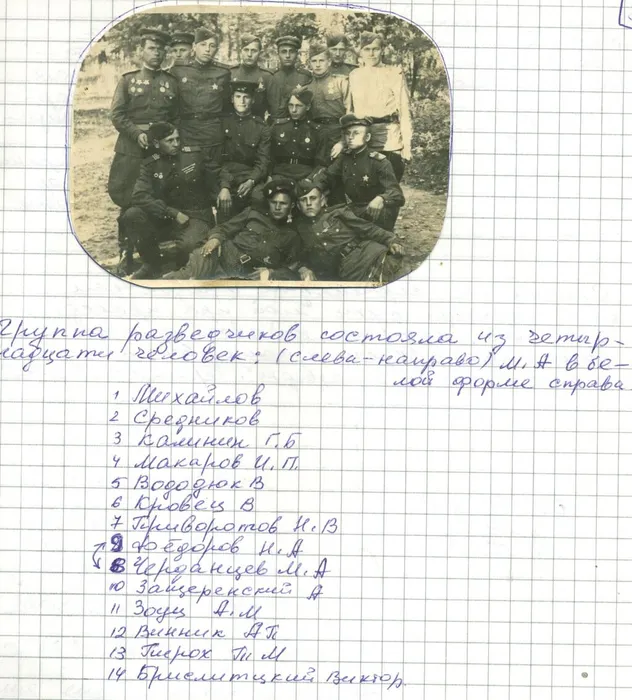 Группа разведчиков состояла из четыр-
надцати человек: (слева-направо) М.А в бе-
лой форме справа
1 Михайлов
2 Средников
3 Калинин Г.Б
4 Макаров И.П.
5 Вододюк В
6 Кровец В
7 Приворотов Н.В
9 Фёдоров Н.А
8 Черданцев М.А
10 Защеренский А
11 Зоуц А.М
12 Винник А П
13 Пирох П М
14 Брислитцкий Виктор.